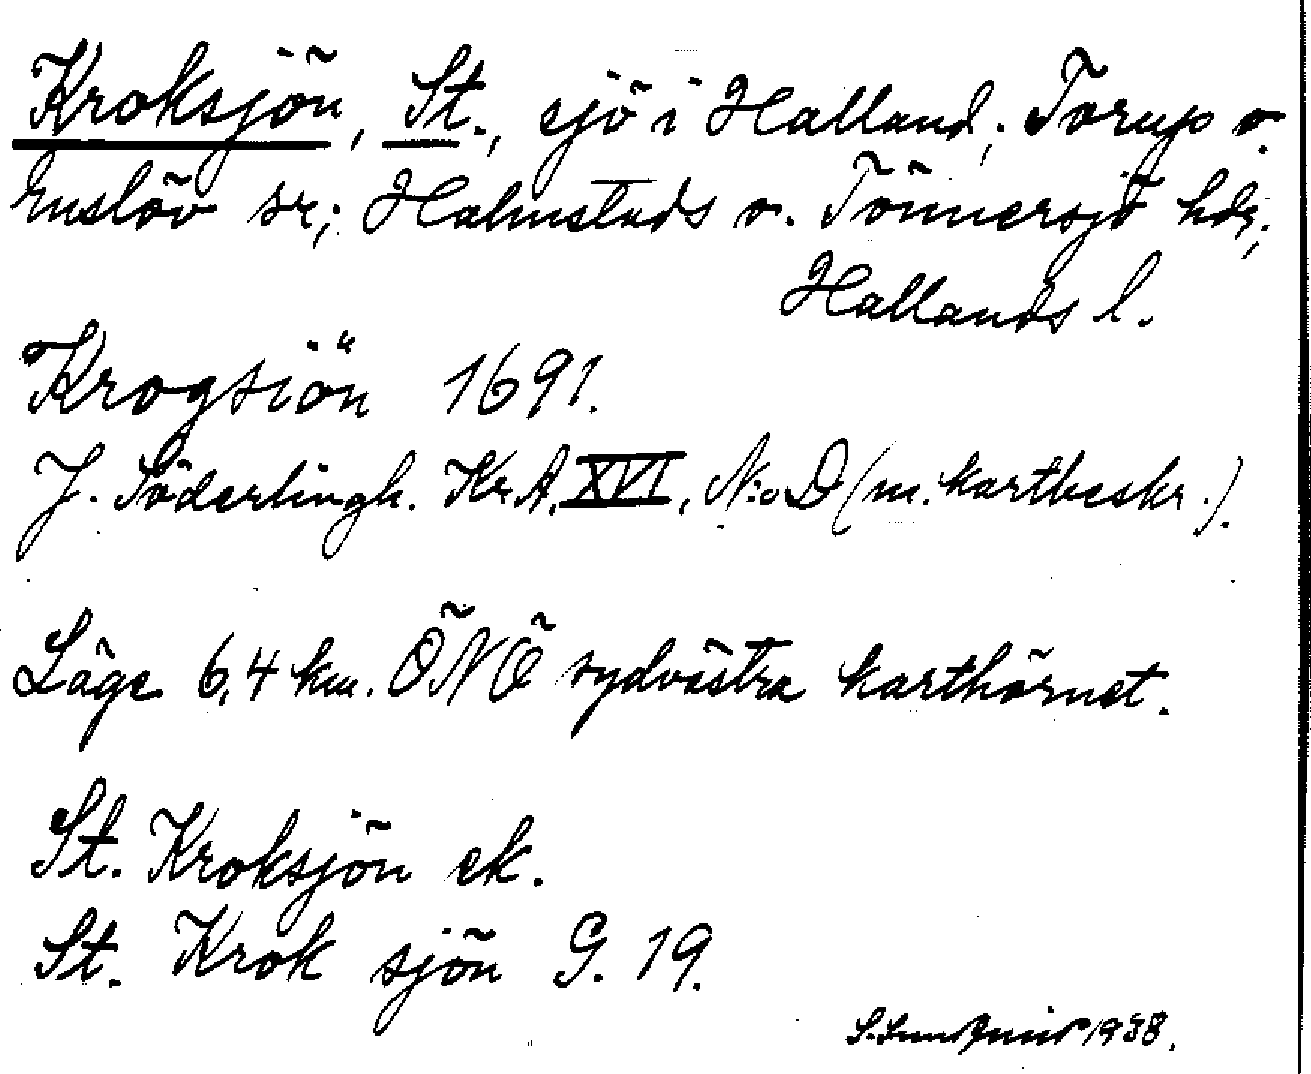 Kroksjön, St., sjö i Halland; Torup o.
Enslöv sr; Halmstads o. Tönnersjö hdr;
Hallands l.
Krogsiön 1691.
J. Söderlingh. Kr.A. XVI, N:o D (m. kartbeskr.).
Läge 6,4 km. ÖNÖ sydvästra karthörnet.
St. Kroksjön ek.
St. Krok sjön G. 19.
S. Sundquist 1938.